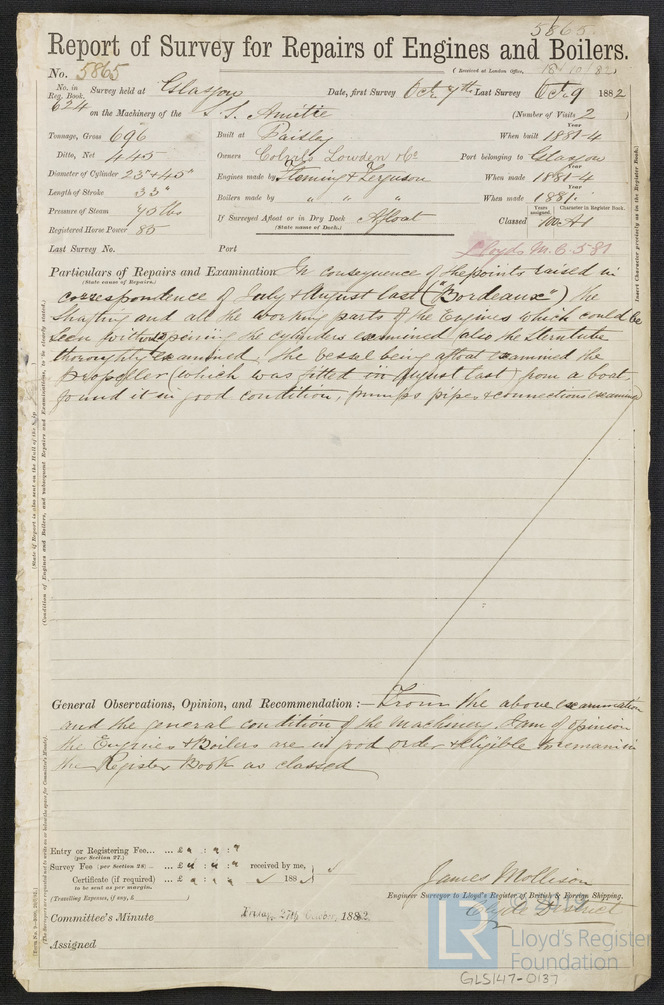 5865
Report of Survey for Repairs of Engines and Boilers.
No. 5865
(Received at London Office, 18/10/82)
No. in Reg. Book. 624
Survey held at Glasgow
Date, first Survey Oct 7th Last Survey Oct 9 1882
on the Machinery of the S.S. Amitie
(Number of Visits 2)
Tonnage, Gross 696
Built at Paisley
When built 1881-4
Ditto, Net 445
Owners Lowden & Co
Port belonging to Glasgow
Diameter of Cylinder 23" & 45"
Engines made by Fleming & Ferguson
When made 1881-4
Length of Stroke 33"
Boilers made by " " "
When made 1881
Pressure of Steam 70 lbs
If Surveyed Afloat or in Dry Dock Afloat
(State name of Dock.)
Years assigned. Character in Register Book.
Classed 100 A1
Registered Horse Power 85
Last Survey No.
Port
Lloyds M.C. 5 81
Particulars of Repairs and Examination In consequence of the points raised in
(State name of Repairs.)
correspondence of July & August last ("Bordeaux") the
Shafting and all the working parts of the Engines which could be
seen without opening the cylinders examined also the Sterntube
thoroughly examined. The vessel being afloat examined the
propeller (which was fitted in August last) from a boat,
found it in good condition, pumps pipes & connections examined
General Observations, Opinion, and Recommendation:— From the above examination
and the general condition of the Machinery I am of opinion
the Engines & Boilers are in good order & eligible to remain in
the Register Book as classed
Entry or Registering Fee... ... £ " : " : "
(per Section 27.)
Survey Fee (per Section 28) ... ... £ " : " : " received by me,
Certificate (if required) ... £ " : " : " 188
to be sent as per margin.
(Travelling Expenses, if any, £ )
James Mollison
Engineer Surveyor to Lloyd's Register of British & Foreign Shipping.
Clyde District
Committee's Minute Friday, 27th October, 1882.
Assigned
LR
Lloyd's Register
Foundation
GLS147-0137
Insert Character precisely as in the Register Book.
(State if Report is also sent on the Hull of the Ship
(Condition of Engines and Boilers, and subsequent Repairs and Examinations, to be clearly stated.)